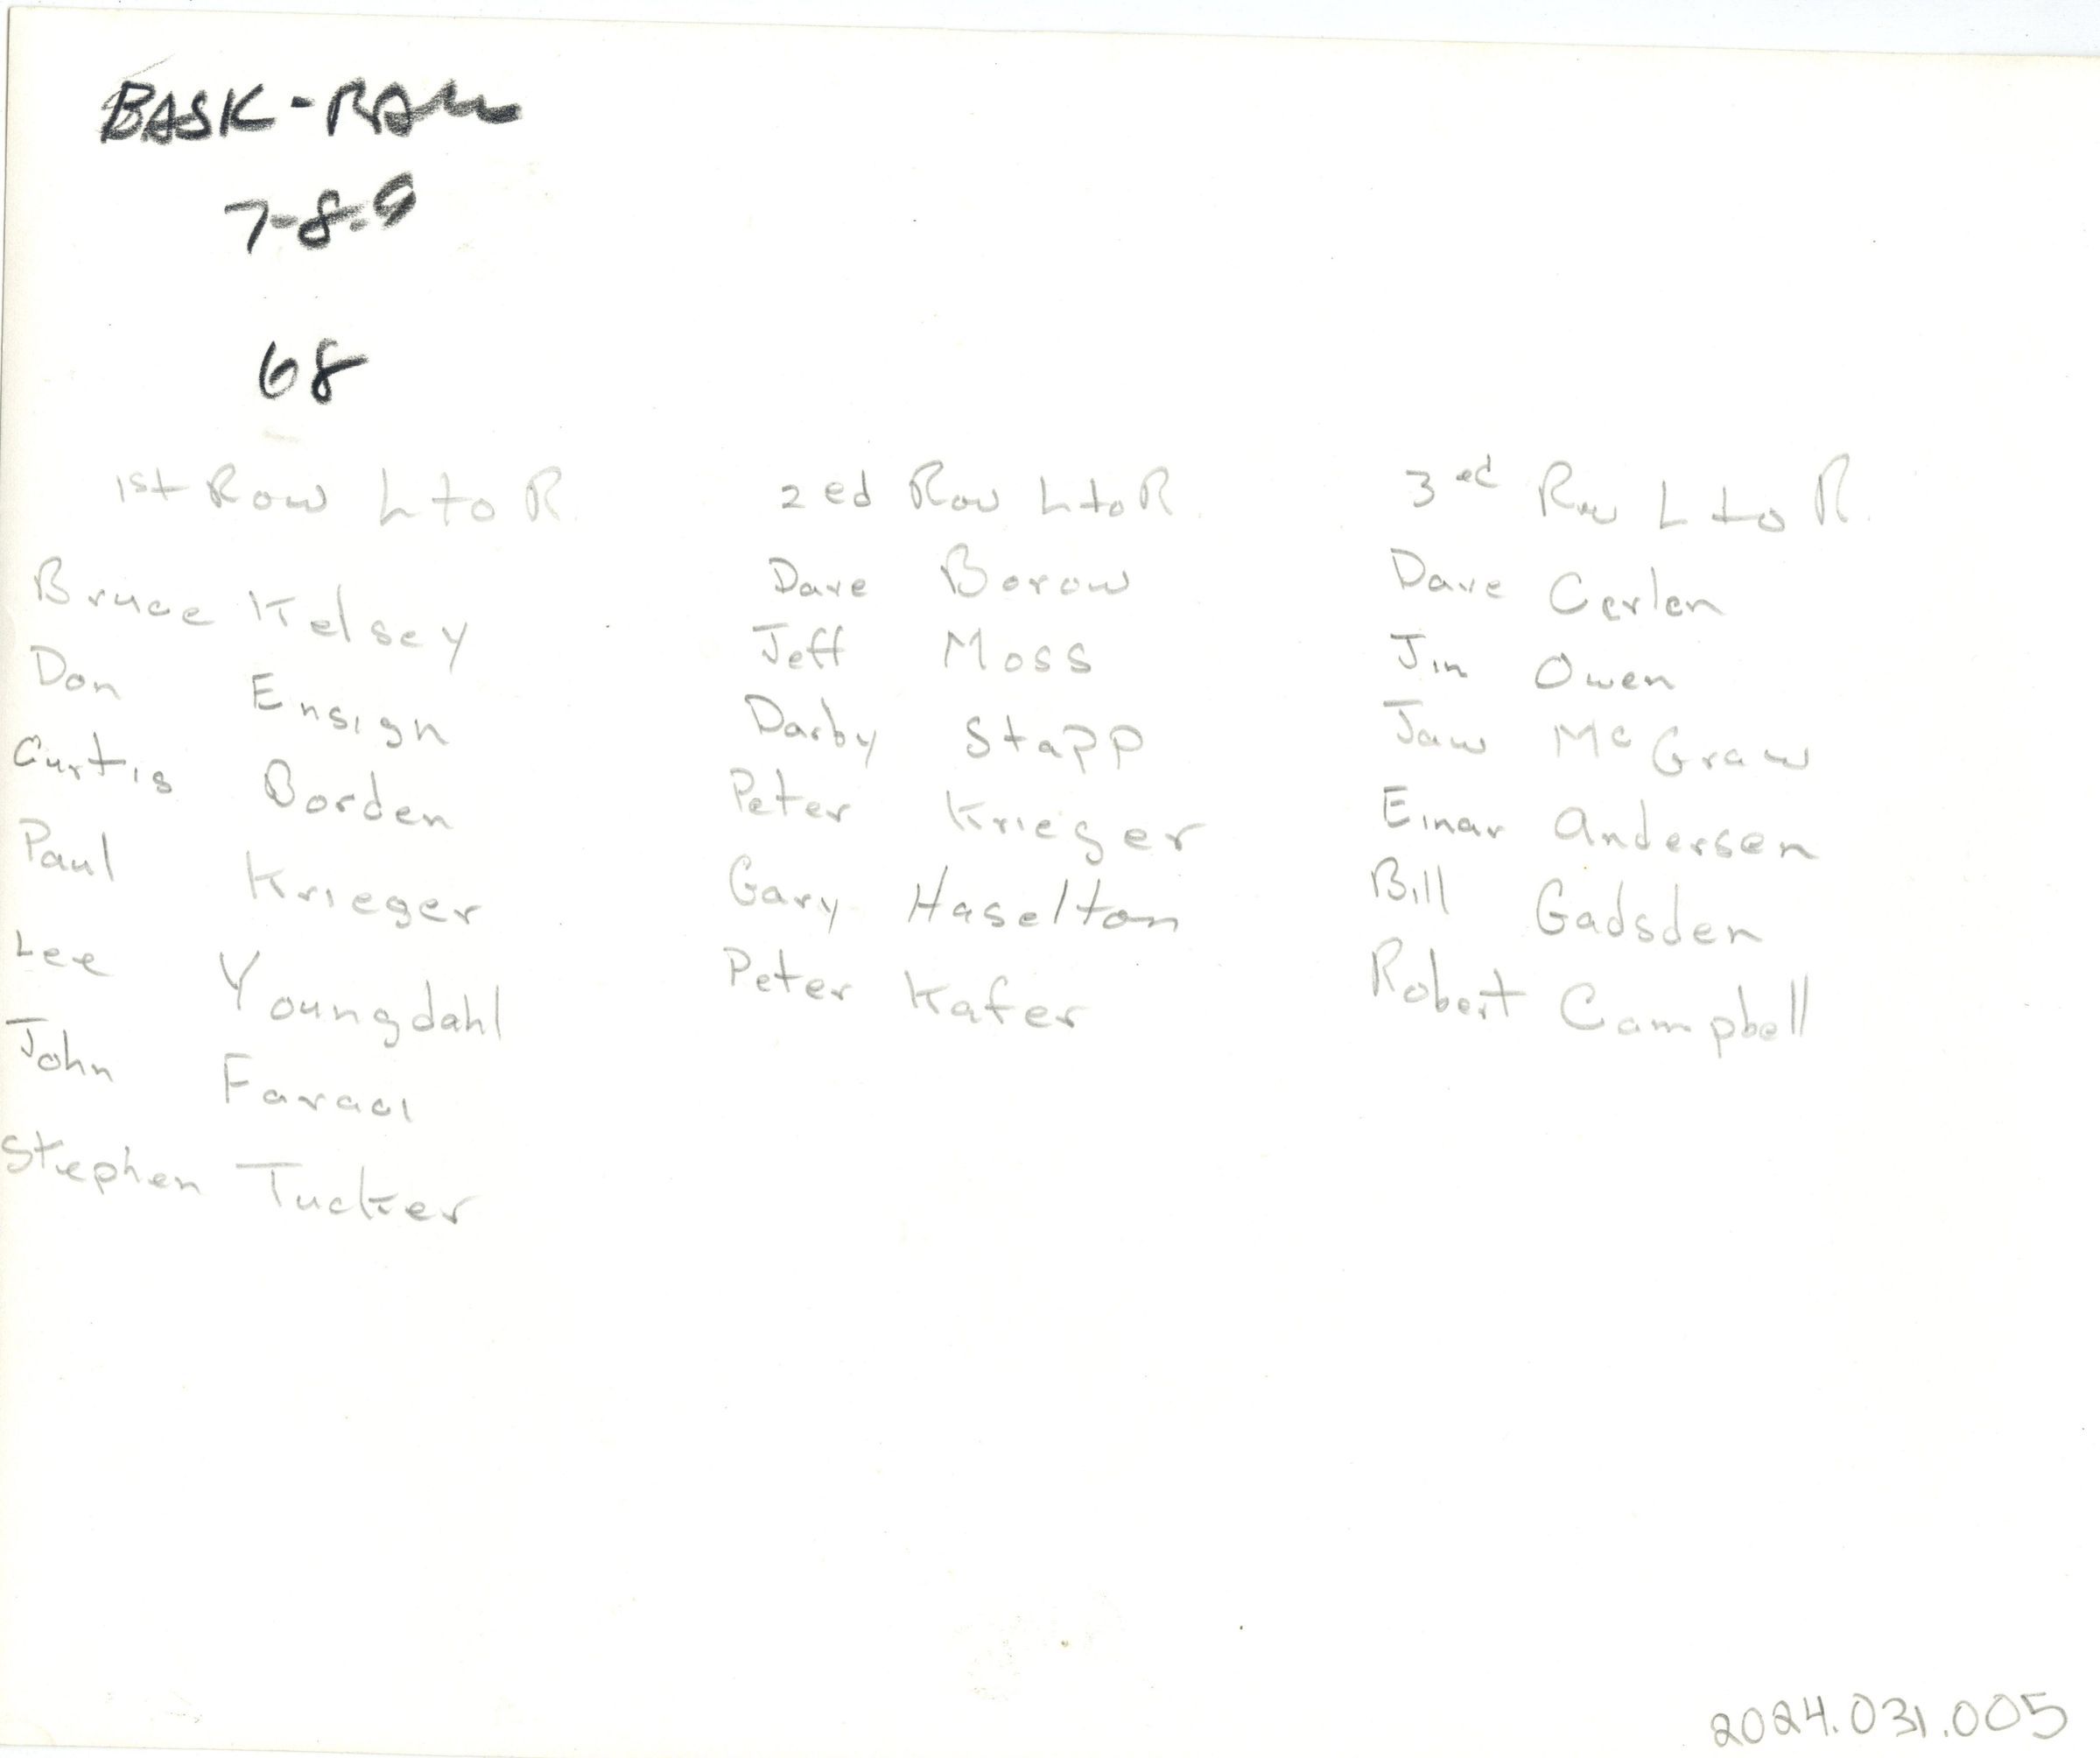 BASK-BALL
7-8-9
68
1st Row L to R
Bruce Kelsey
Don Ensign
Curtis Borden
Paul Krieger
Lee Youngdahl
John Faraci
Stephen Tucker
2ed Row L to R.
Dave Borow
Jeff Moss
Darby Stapp
Peter Krieger
Gary Haselton
Peter Kafer
3ed Row L to R.
Dave Cerlen
Jim Owen
Jaw McGraw
Einar Andersen
Bill Gadsden
Robert Campbell
2024.031.005